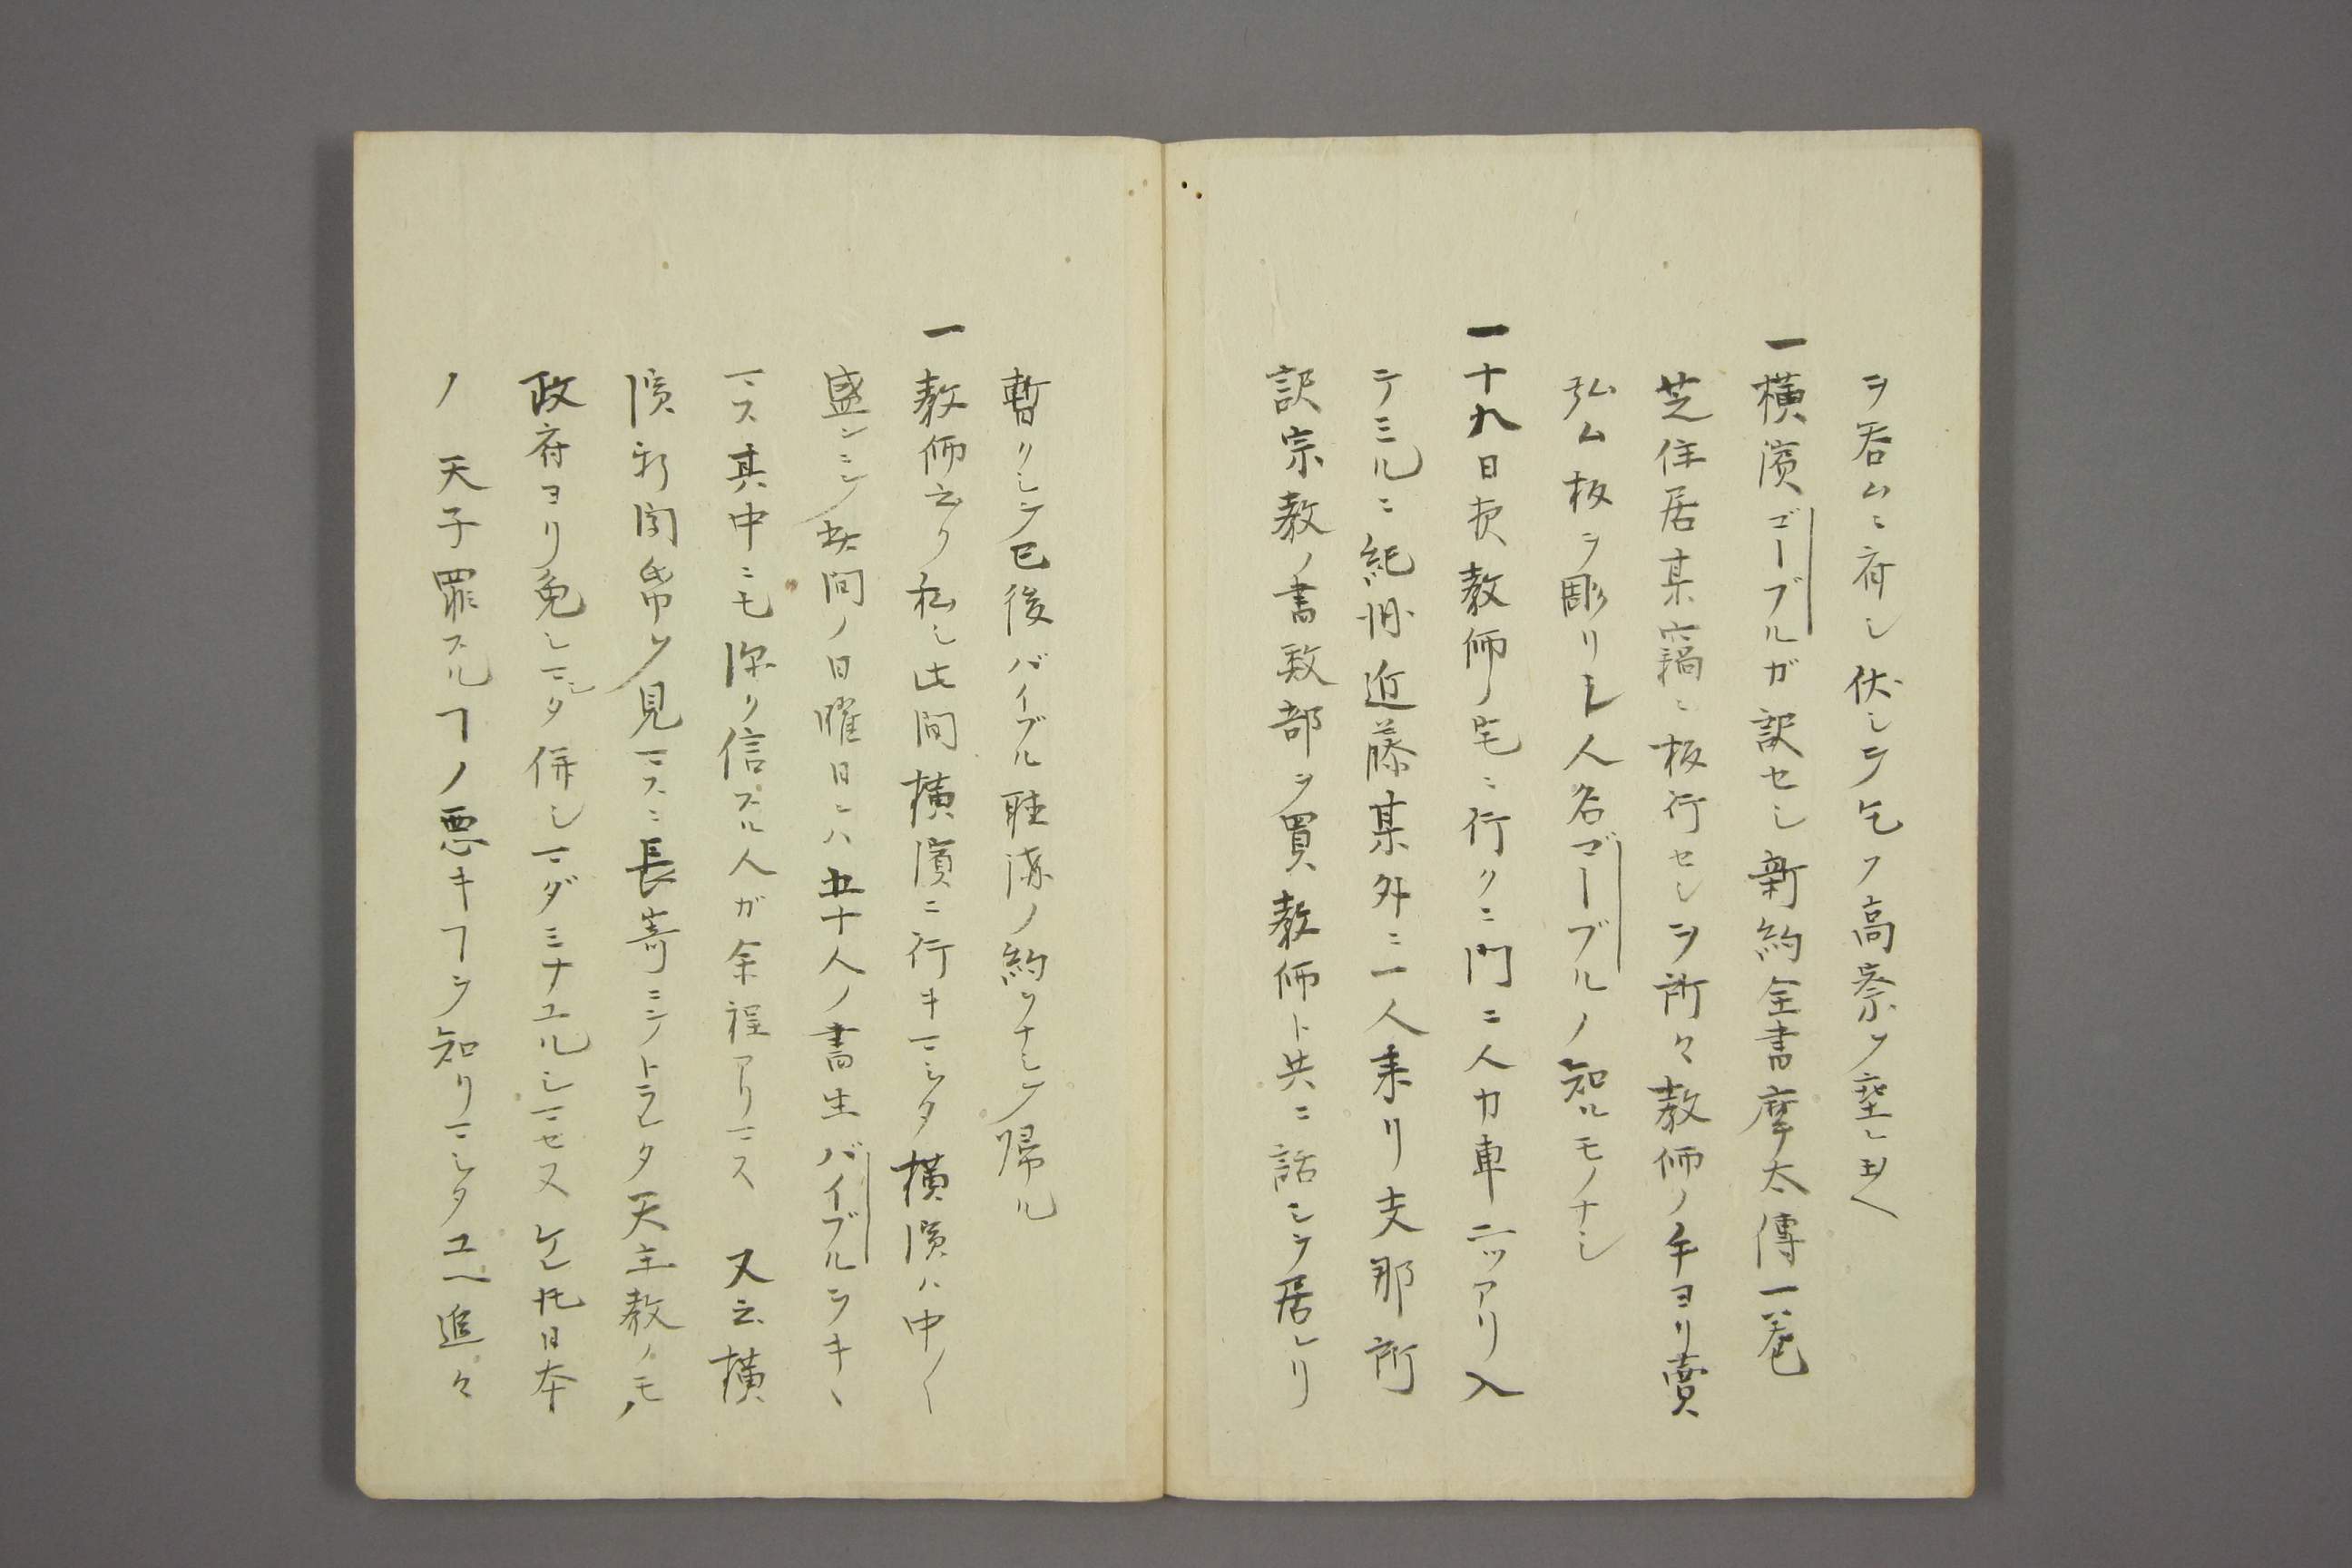 ヲ呑ムニ府シ伏シテ乞フ高察ヲ垂レ玉ヘ
一横濱ゴーブルガ訳セシ新約全書摩太傳一巻
芝住居某竊ニ板行セシヲ所々教師ノ手ヨリ賣
弘ム板ヲ彫リシ人名ゴーブルノ知ルモノナシ
一十九日夜教師ノ宅ニ行クニ門ニ人力車二ツアリ入
テミルニ紀州近藤某外ニ一人来リ支那所
訳宗教ノ書数部ヲ買教師ト共ニ話シテ居レリ
暫クシテ已後バイブル聴講ノ約ヲナシテ帰ル
一教師云ク私シ此間横濱ニ行キマシタ横濱ハ中〱
盛ンニシテ此間ノ日曜日ニハ五十人ノ書生バイブルヲキヽ
マス其中ニモ深ク信スル人ガ余程アリマス 又云横
濱新聞帋ヲ見マスニ長嵜ニテトラレタ天主教ノモノ
政府ヨリ免シマシタ併シマダミナユルシマセヌケレ𪜈日本
ノ 天子罪スルヿノ悪キヿヲ知リマシタユヘ追々